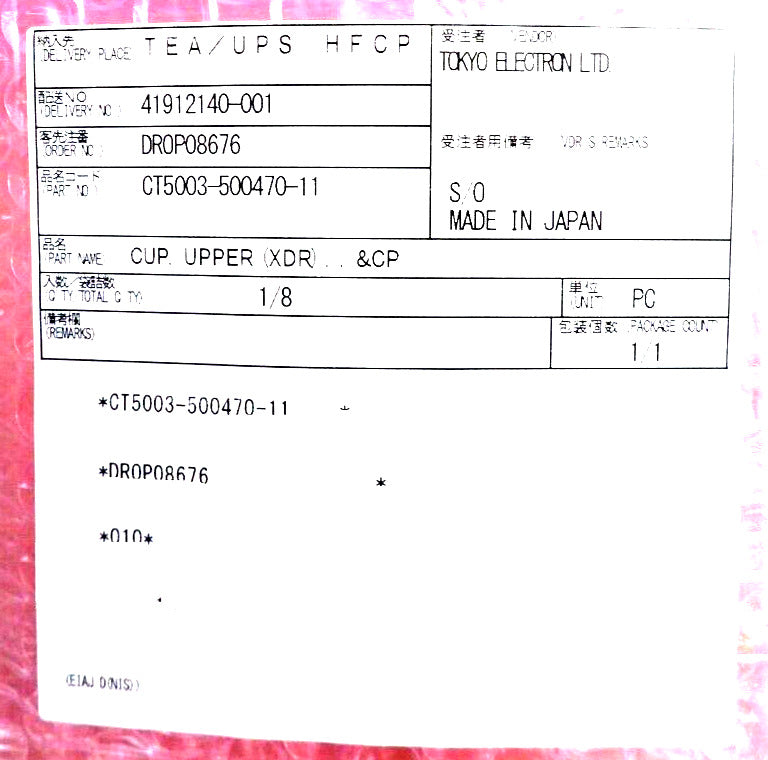 納入先
(DELIVERY PLACE) TEA/UPS HFCP
受注者 (VENDOR)
TOKYO ELECTRON LTD.
配送NO
(DELIVERY NO.) 41912140-001
客先注番
(ORDER NO.) DR0P08676
受注者用備考 (VDR'S REMARKS)
品名コード
(PART NO.) CT5003-500470-11
S/O
MADE IN JAPAN
品名
(PART NAME) CUP, UPPER (XDR)... &CP
入数/袋詰数
(Q'TY/TOTAL Q'TY) 1/8
単位
(UNIT) PC
備考欄
(REMARKS)
包装個数 (PACKAGE COUNT)
1/1
*CT5003-500470-11
*DR0P08676 *
*010*
(EIAJ D(NIS))